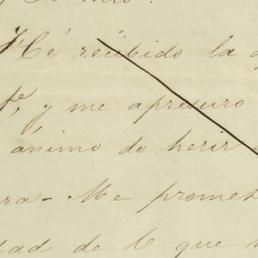 Hé recibido la
y me apresuro
ánimo de herir
ra- Me promet
dad de l que